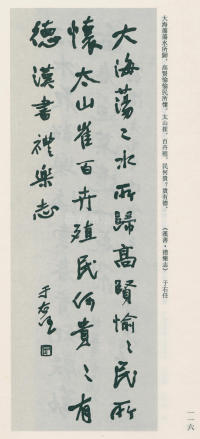 大海蕩蕩水所歸，高賢愉愉民所懷。太山崔，百卉殖。民何貴？貴有德。 《漢書·禮樂志》 于右任
大海蕩〻水所歸高賢愉〻民所
懷太山崔百卉殖民何貴〻有
德漢書禮樂志
于右任
一一六